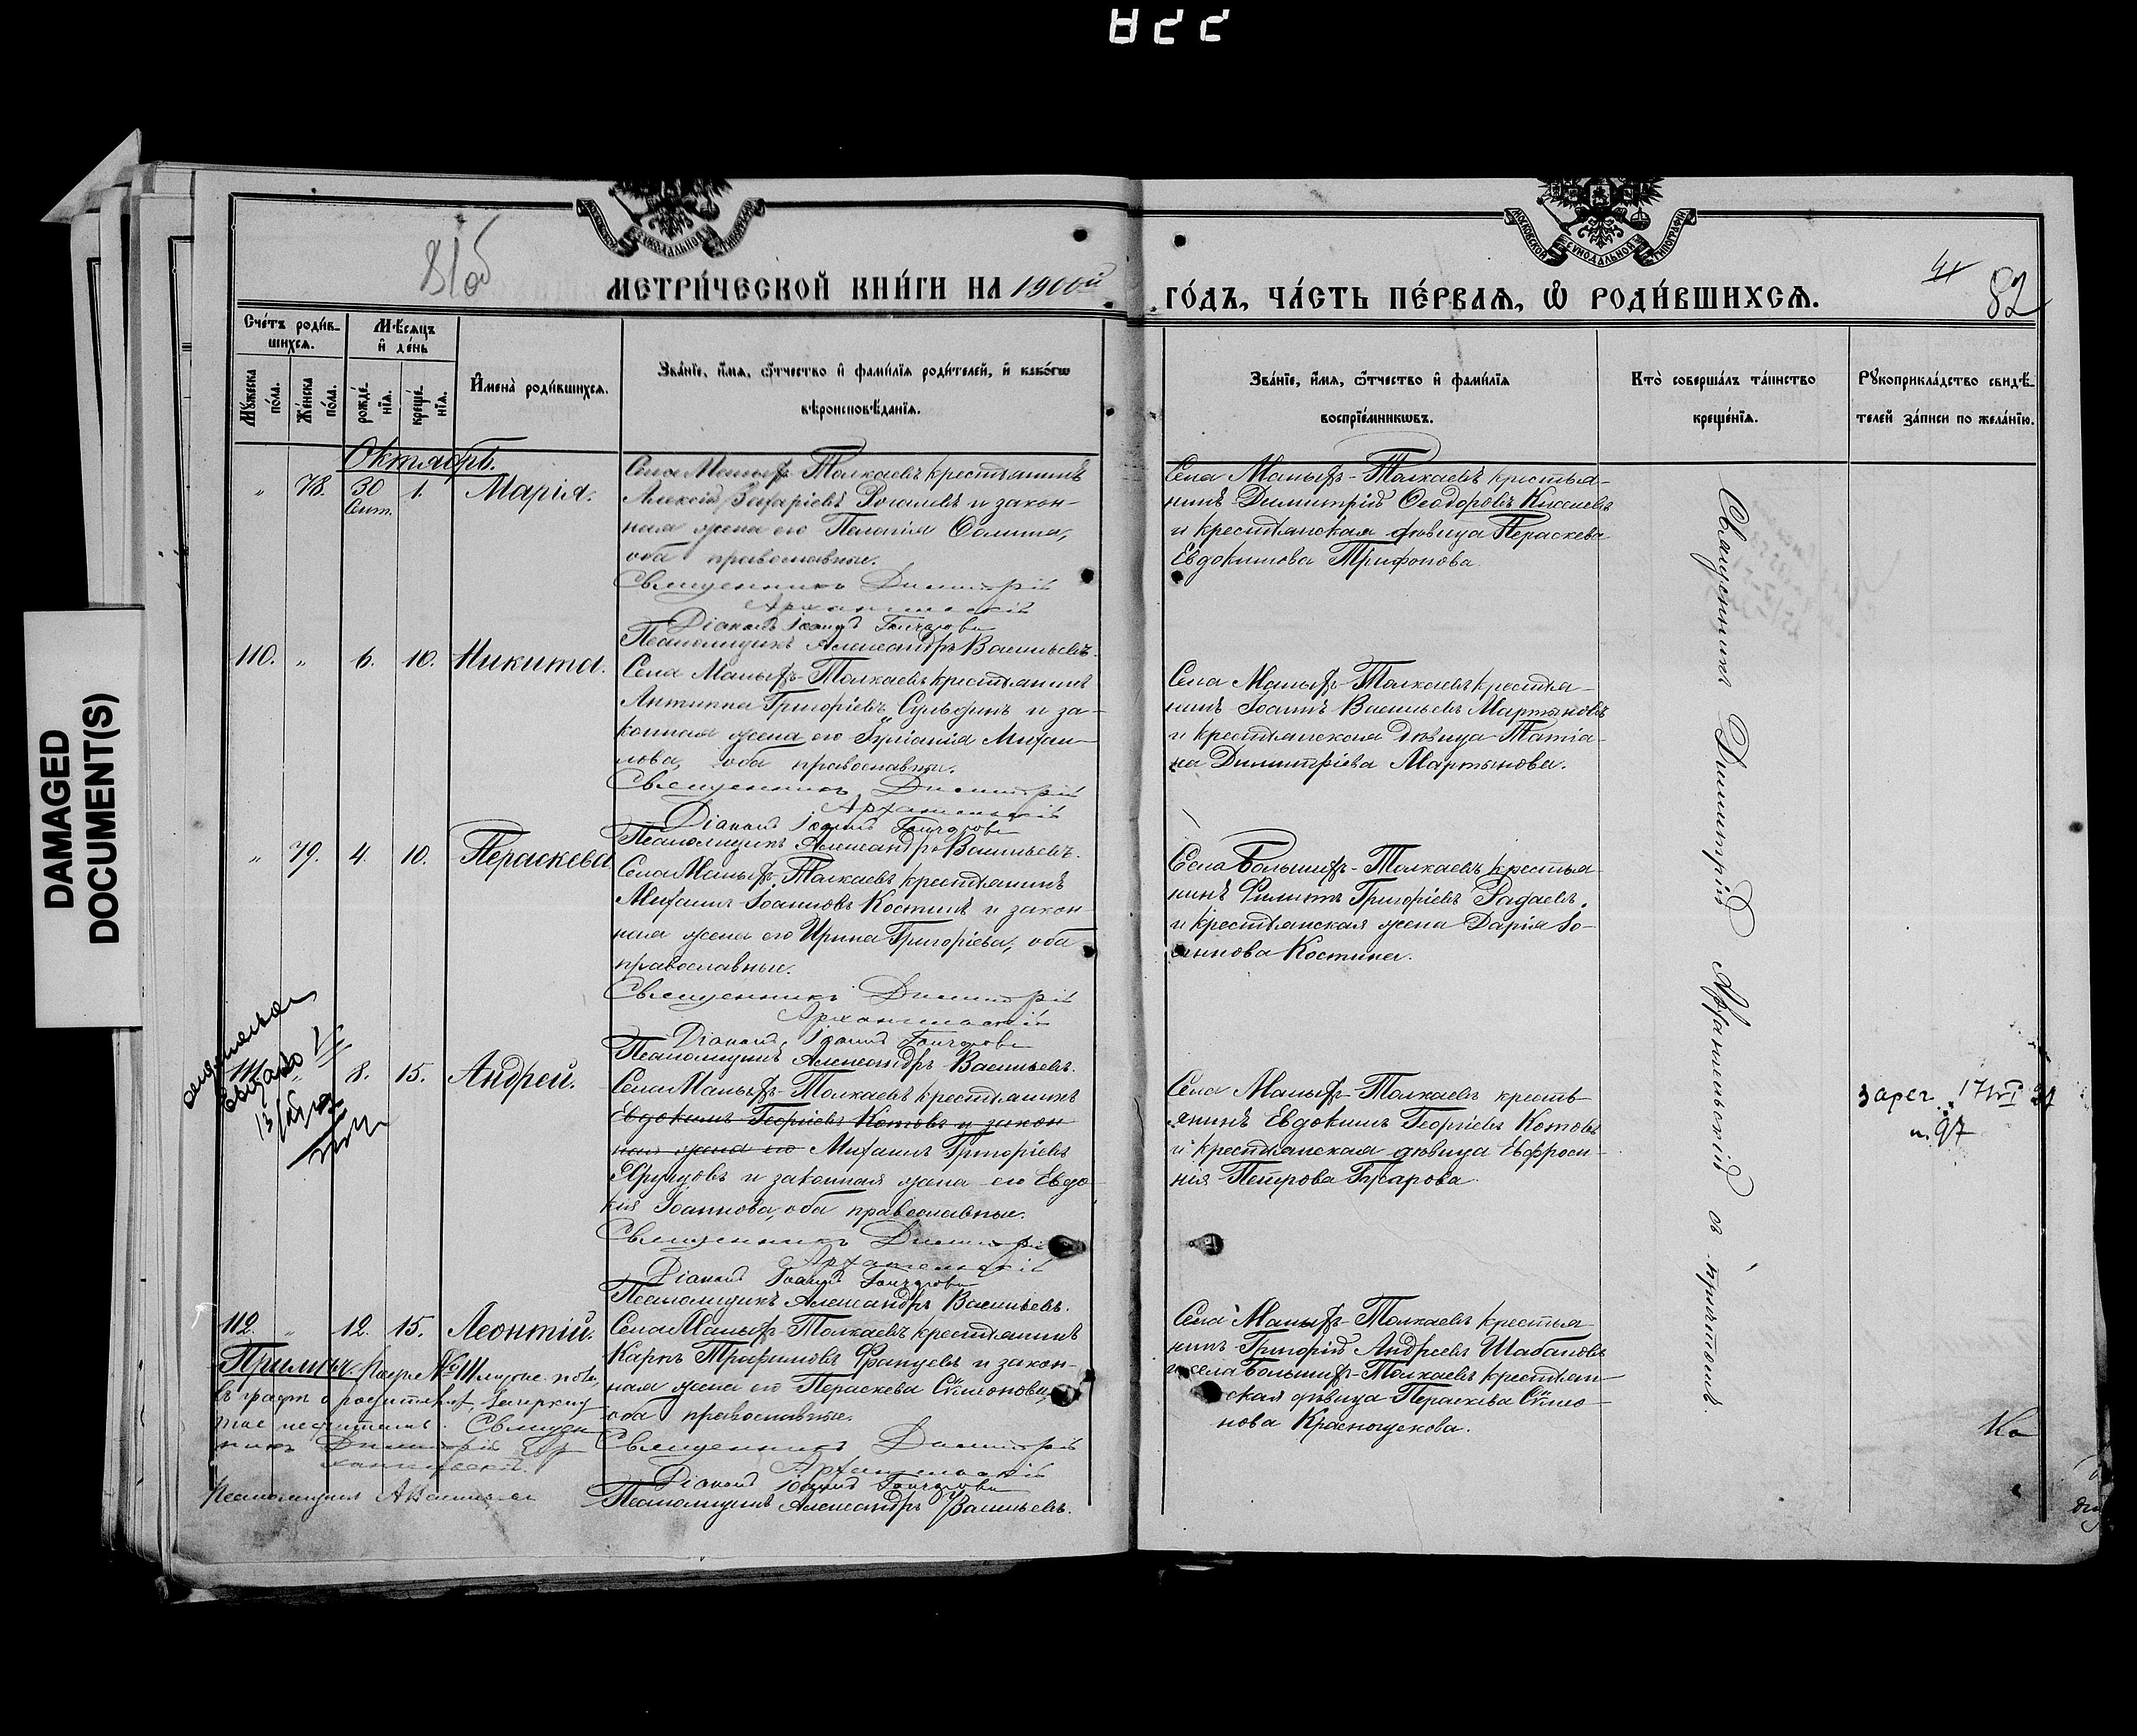 822
81об
МЕТРИ́ЧЕСКОЙ КНИ́ГИ НА 1900й
ГО́ДЪ, ЧА́СТЬ ПЕ́РВАѦ, Ѿ РОДИ́ВШИХСѦ.
82
МОСКОВСКОЙ СѴНОДАЛЬНОЙ ТИПОГРАФІИ
Сче́тъ роди́в-
шихсѧ.
Мѣ́сѧцъ
и҆ де́нь
Мꙋ́жеска
по́ла.
Же́нска
по́ла.
рожде́-
нїѧ.
креще́-
нїѧ.
И҆мена̀ роди́вшихсѧ.
Зва́нїе, и҆́мѧ, ѻ҆́тчество и҆ фамі́лїѧ роди́телей, и҆ како́гѡ
вѣроисповѣ́данїѧ.
Зва́нїе, и҆́мѧ, ѻ҆́тчество и҆ фамі́лїѧ
воспрїе́мникѡвъ.
Кто̀ соверша́лъ та́инство
креще́нїѧ.
Рꙋкоприкла́дство свидѣ́-
телей за́писи по жела́нїю.
Октябрь.
" 78. 30 Сент. 1. Марія.
Села Малыхъ-Толкаевъ крестьянинъ
Алексій Захаріевъ Рогачевъ и закон-
ная жена его Пелагія Ѳомина,
оба православные.
Священникъ Димитрій
Архангельскій
Діаконъ Іоаннъ Гончаровъ
Псаломщикъ Александръ Васильевъ.
Села Малыхъ-Толкаевъ крестья-
нинъ Димитрій Ѳеодоровъ Киселевъ
и крестьянская дѣвица Параскева
Евдокимова Трифонова.
110. " 6. 10. Никита.
Села Малыхъ-Толкаевъ крестьянинъ
Антипа Григоріевъ Сульдинъ и за-
конная жена его Іуліанія Михаи-
лова, оба православные.
Священникъ Димитрій
Архангельскій
Діаконъ Іоаннъ Гончаровъ
Псаломщикъ Александръ Васильевъ.
Села Малыхъ-Толкаевъ крестья-
нинъ Іоаннъ Васильевъ Мартыновъ
и крестьянская дѣвица Татіа-
на Димитріева Мартынова.
" 79. 4. 10. Параскева
Села Малыхъ-Толкаевъ крестьянинъ
Михаилъ Іоанновъ Костинъ и закон-
ная жена его Ирина Григоріева, оба
православные.
Священникъ Димитрій
Архангельскій
Діаконъ Іоаннъ Гончаровъ
Псаломщикъ Александръ Васильевъ.
Села Большихъ-Толкаевъ крестья-
нинъ Филиппъ Григоріевъ Радаевъ,
и крестьянская жена Дарія Іо-
аннова Костина.
111. " 8. 15. Андрей.
Села Малыхъ-Толкаевъ крестьянинъ
Евдокимъ Георгіевъ Котовъ и закон-
ная жена его Михаилъ Григоріевъ
Ярунцовъ и законная жена его Евдо-
кія Іоаннова, оба православные.
Священникъ Димитрій
Архангельскій
Діаконъ Іоаннъ Гончаровъ
Псаломщикъ Александръ Васильевъ.
Села Малыхъ-Толкаевъ кресть-
янинъ Евдокимъ Георгіевъ Котовъ
и крестьянская дѣвица Евфроси-
нія Петрова Гусарова.
зарег.
н. 97
112. " 12. 15. Леонтій.
Села Малыхъ-Толкаевъ крестьянинъ
Карпъ Трофимовъ Фануевъ и закон-
ная жена его Параскева Сѵмеонова,
оба православные.
Священникъ Димитрій
Архангельскій
Діаконъ Іоаннъ Гончаровъ
Псаломщикъ Александръ Васильевъ.
Села Малыхъ-Толкаевъ крестья-
нинъ Григорій Андреевъ Шабановъ
и села Большихъ-Толкаевъ крестьян-
ская дѣвица Параскева Сѵмео-
нова Краснощекова.
Примѣч.
въ графѣ о родителях, зачеркну-
тое не читать. Священ-
никъ Димитрій Ар-
хангельскій.
Псаломщикъ А Васильевъ
Священникъ Димитрій Архангельскій съ причтомъ
DAMAGED
DOCUMENT(S)